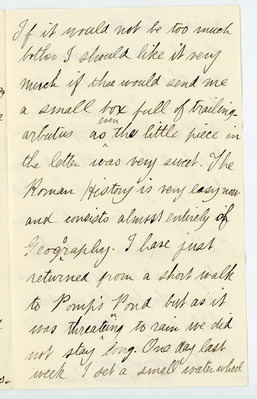 If it would not be too much
bother I should like it very
much if thee would send me
a small box full of trailing-
arbutus as even the little piece in
the letter was very sweet. The
Roman History is very easy now
and consists almost entirely of
Geography. I have just
returned from a short walk
to Pomp's Pond but as it
was threatening to rain we did
not stay long. One day last
week I set a small water wheel